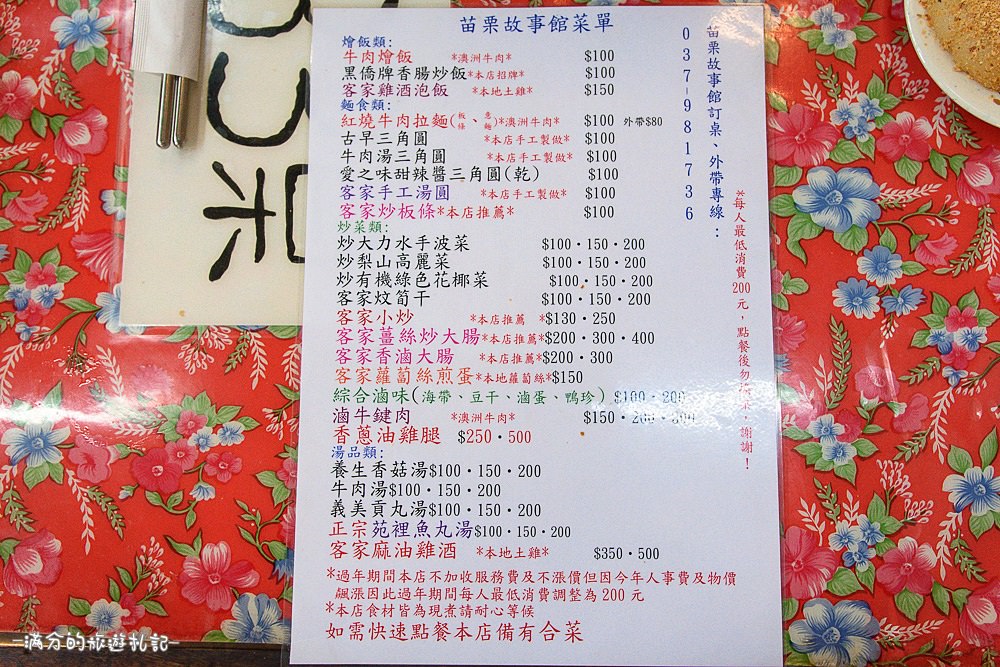 苗栗故事館菜單
燴飯類:
牛肉燴飯 *澳洲牛肉* $100
黑僑牌香腸炒飯*本店招牌* $100
客家雞酒泡飯 *本地土雞* $150
麵食類:
紅燒牛肉拉麵(板條、意麵)*澳洲牛肉* $100 外帶$80
古早三角圓 *本店手工製做* $100
牛肉湯三角圓 *本店手工製做* $100
愛之味甜辣醬三角圓(乾) $100
客家手工湯圓 *本店手工製做* $100
客家炒板條*本店推薦* $100
炒菜類:
炒大力水手波菜 $100·150·200
炒梨山高麗菜 $100·150·200
炒有機綠色花椰菜 $100·150·200
客家炆筍干 $100·150·200
客家小炒 *本店推薦 *$130·250
客家薑絲炒大腸*本店推薦*$200·300·400
客家香滷大腸 *本店推薦*$200·300
客家蘿蔔絲煎蛋*本地蘿蔔絲*$150
綜合滷味(海帶、豆干、滷蛋、鴨珍) $100·200
滷牛腱肉 *澳洲牛肉* $150·200·300
香蔥油雞腿 $250·500
湯品類:
養生香菇湯$100·150·200
牛肉湯$100·150·200
義美貢丸湯$100·150·200
正宗苑裡魚丸湯$100·150·200
客家麻油雞酒 *本地土雞* $350·500
*過年期間本店不加收服務費及不漲價但因今年人事費及物價
飆漲因此過年期間每人最低消費調整為 200 元
*本店食材皆為現煮請耐心等候
如需快速點餐本店備有合菜
苗栗故事館訂桌、外帶專線:
037-981736
*每人最低消費200元,點餐後勿退菜,謝謝!
-滿分的旅遊札記-